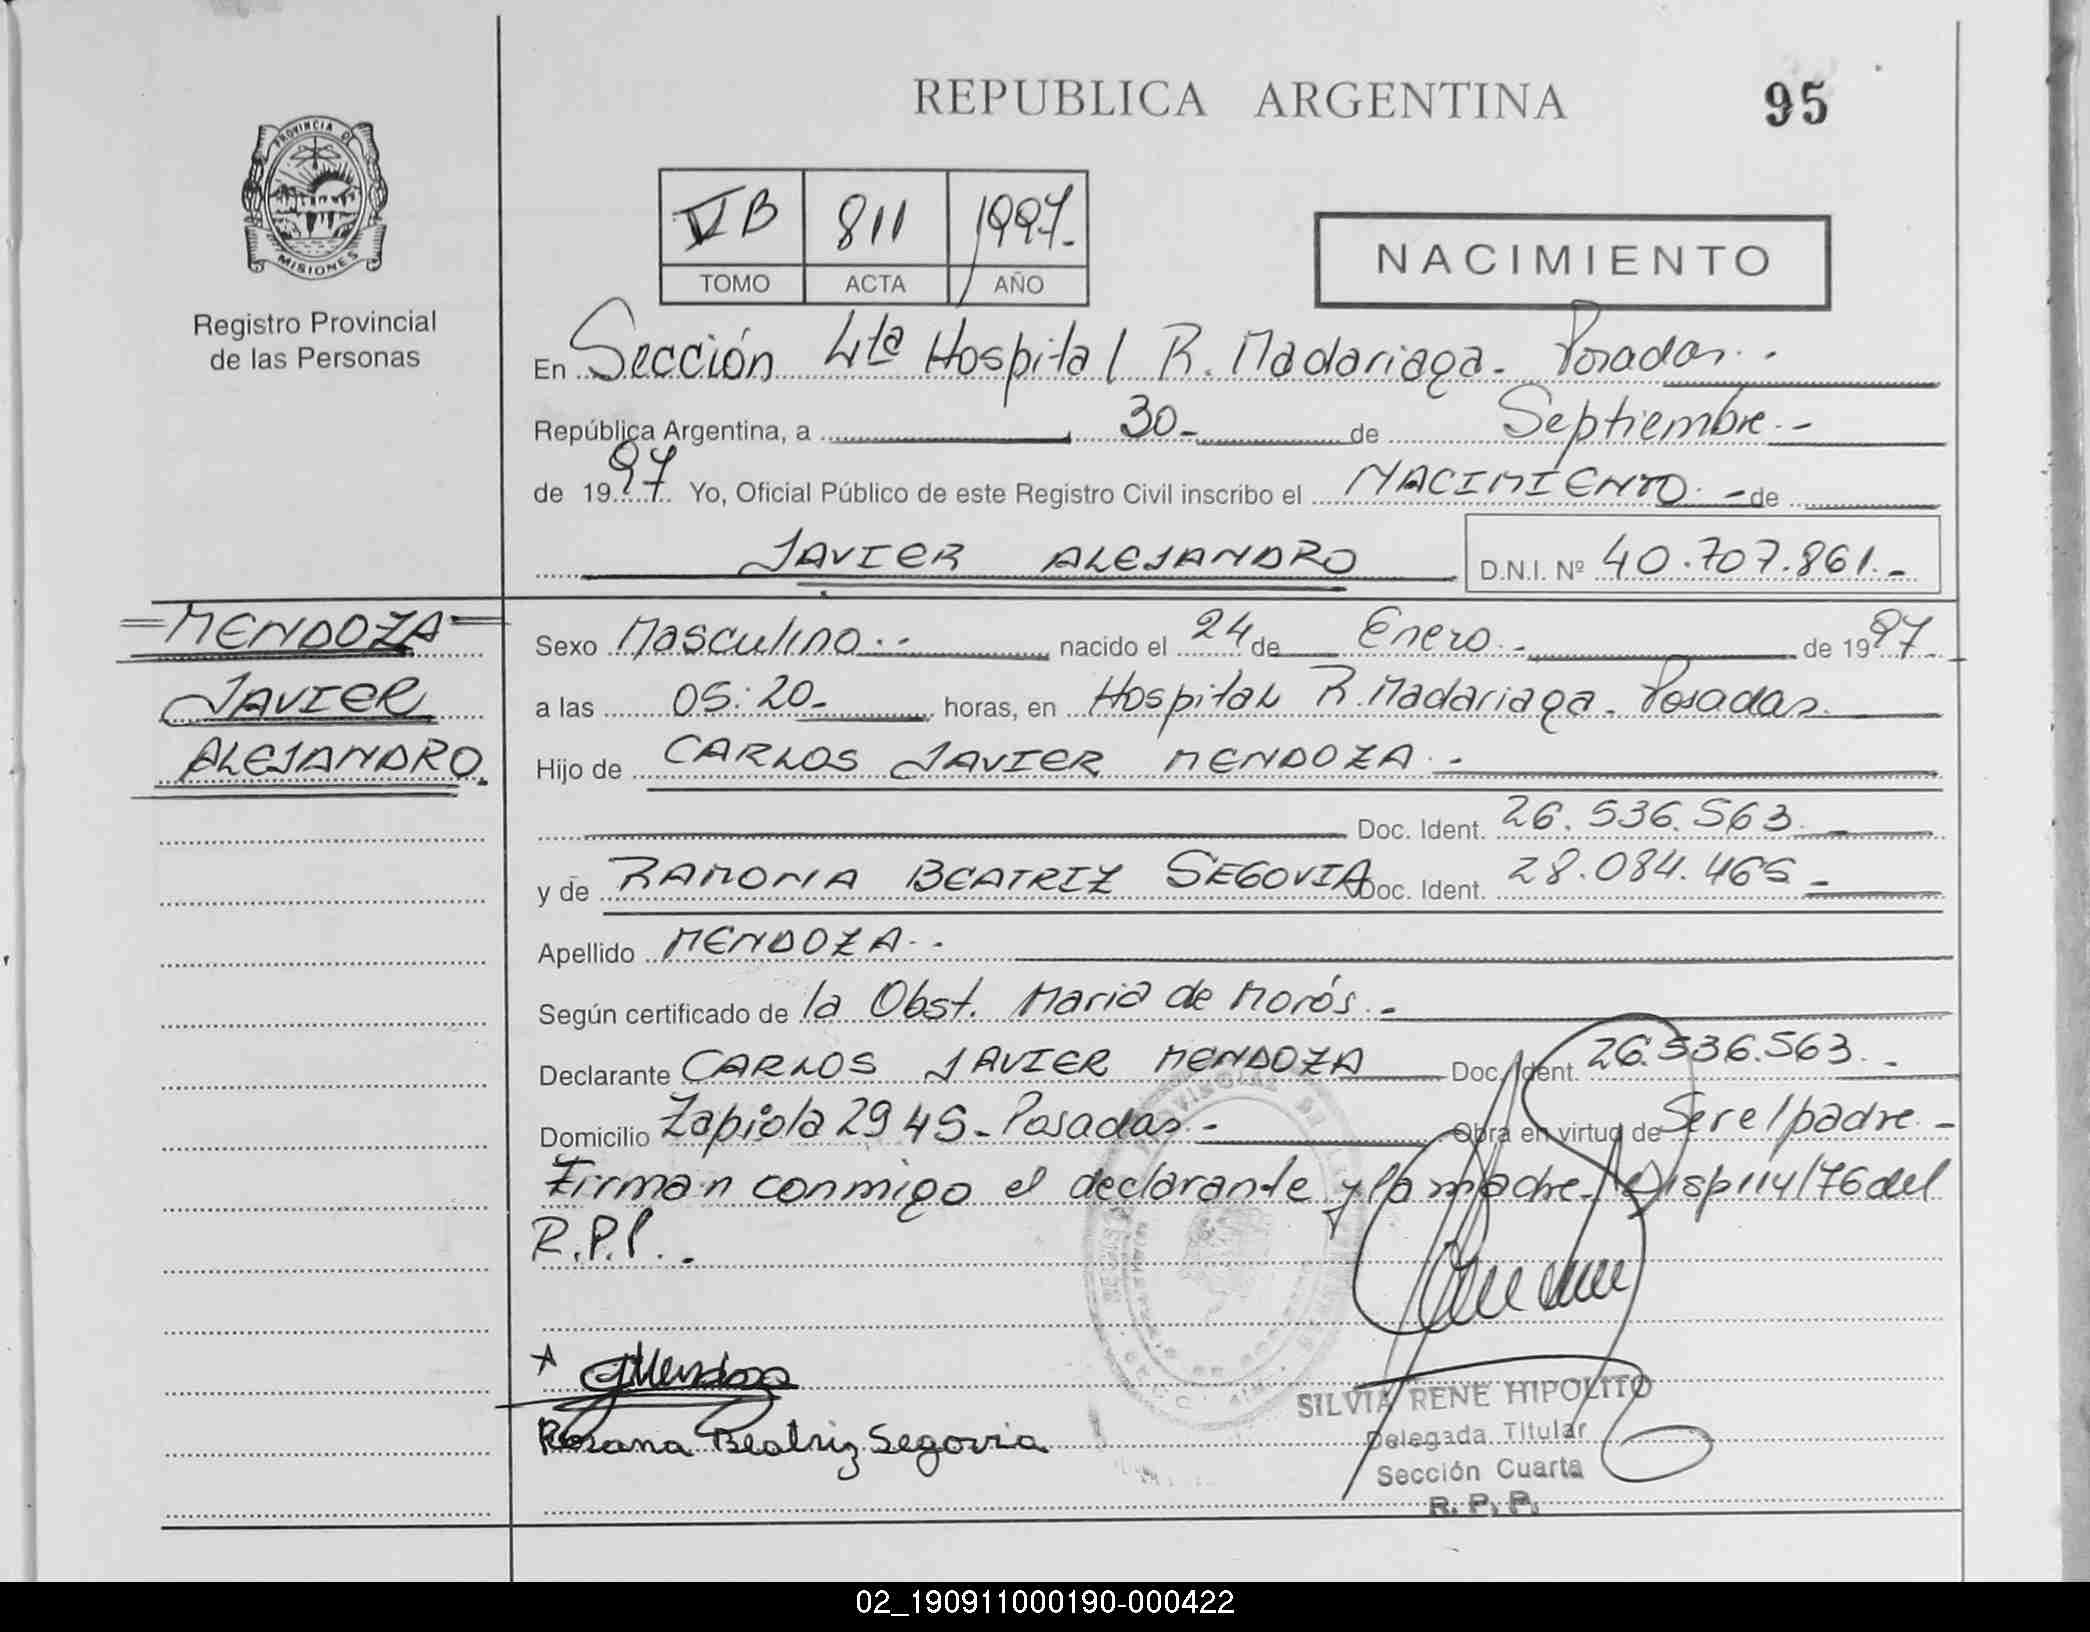 REPUBLICA ARGENTINA
95
PROVINCIA DE
MISIONES
Registro Provincial
de las Personas
VB 811 1997.-
TOMO ACTA AÑO
NACIMIENTO
En Sección 4ta Hospital R. Madariaga - Posadas. -
República Argentina, a 30- de Septiembre. -
de 1997 Yo, Oficial Público de este Registro Civil inscribo el NACIMIENTO. - de
JAVIER ALEJANDRO D.N.I. Nº 40.707.861.-
MENDOZA
JAVIER
ALEJANDRO.
Sexo Masculino.. nacido el 24 de Enero. - de 1997.
a las 05:20- horas, en Hospital R. Madariaga - Posadas.
Hijo de CARLOS JAVIER MENDOZA. -
Doc. Ident. 26.536.563. -
y de RAMONA BEATRIZ SEGOVIA Doc. Ident. 28.084.465 -
Apellido MENDOZA. -
Según certificado de la Obst. Maria de Morós. -
Declarante CARLOS JAVIER MENDOZA Doc. Ident. 26.536.563. -
Domicilio Zapiola 2945- Posadas. - Obra en virtud de Ser el padre. -
Firman conmigo el declarante y la madre. Disp 114/76 del
R.P.P. . -
Mendoza
Rosana Beatriz Segovia
SILVIA RENE HIPOLITO
Delegada Titular
Sección Cuarta
R. P. P.
02_190911000190-000422